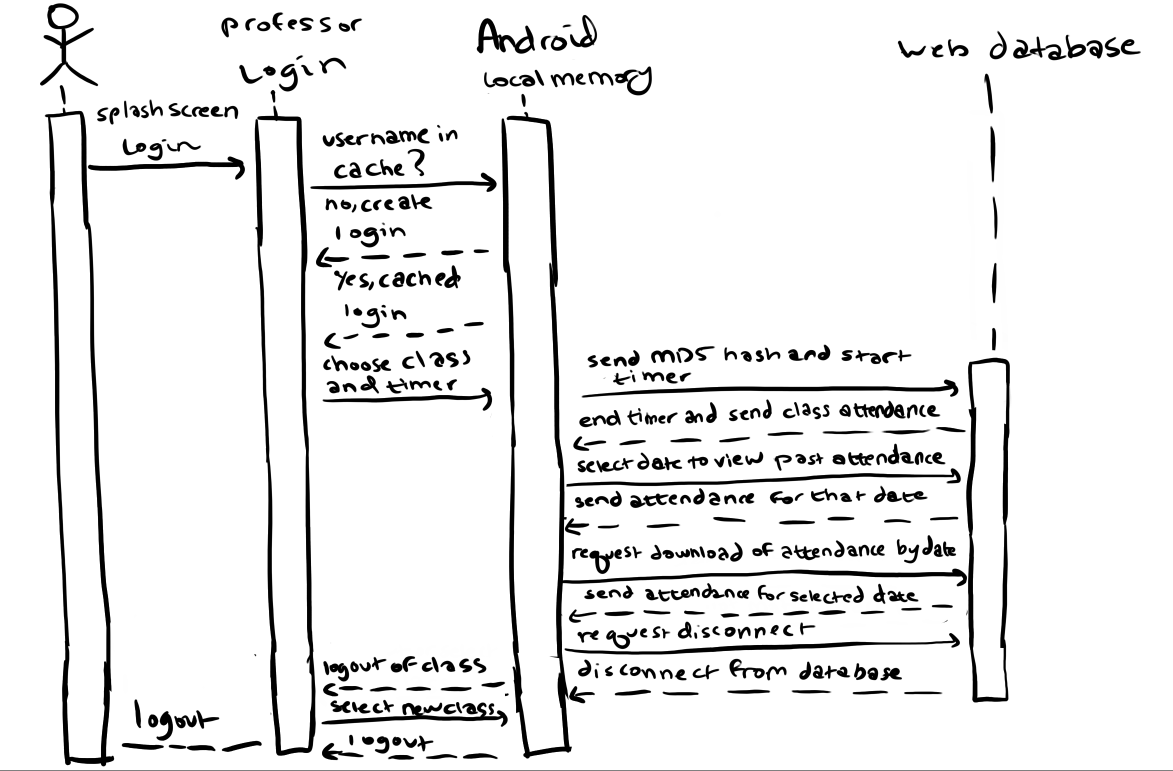 professor
Login
Android
Local memory
web database
splash screen
Login
username in
cache?
no, create
login
Yes, cached
login
choose class
and timer
send MD5 hash and start
timer
end timer and send class attendance
select date to view past attendance
send attendance for that date
request download of attendance by date
send attendance for selected date
request disconnect
disconnect from database
logout of class
select new class
logout
logout